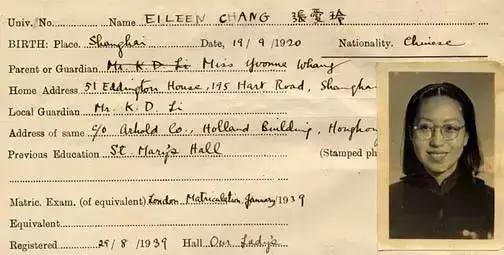 Univ. No. Name EILEEN CHANG 張愛玲
BIRTH: Place. Shanghai Date, 19/9/1920 Nationality. Chinese
Parent or Guardian Mr. K. D. Li Miss Yvonne Whang
Home Address 51 Eddington House, 195 Hart Road, Shangha
Local Guardian Mr. K. D. Li
Address of same c/o Arnhold Co., Holland Building, Hongkong
Previous Education St. Mary's Hall
(Stamped ph
Matric. Exam. (of equivalent) London Matriculation, January 1939
Equivalent
Registered 29/8/1939 Hall Our Lady's